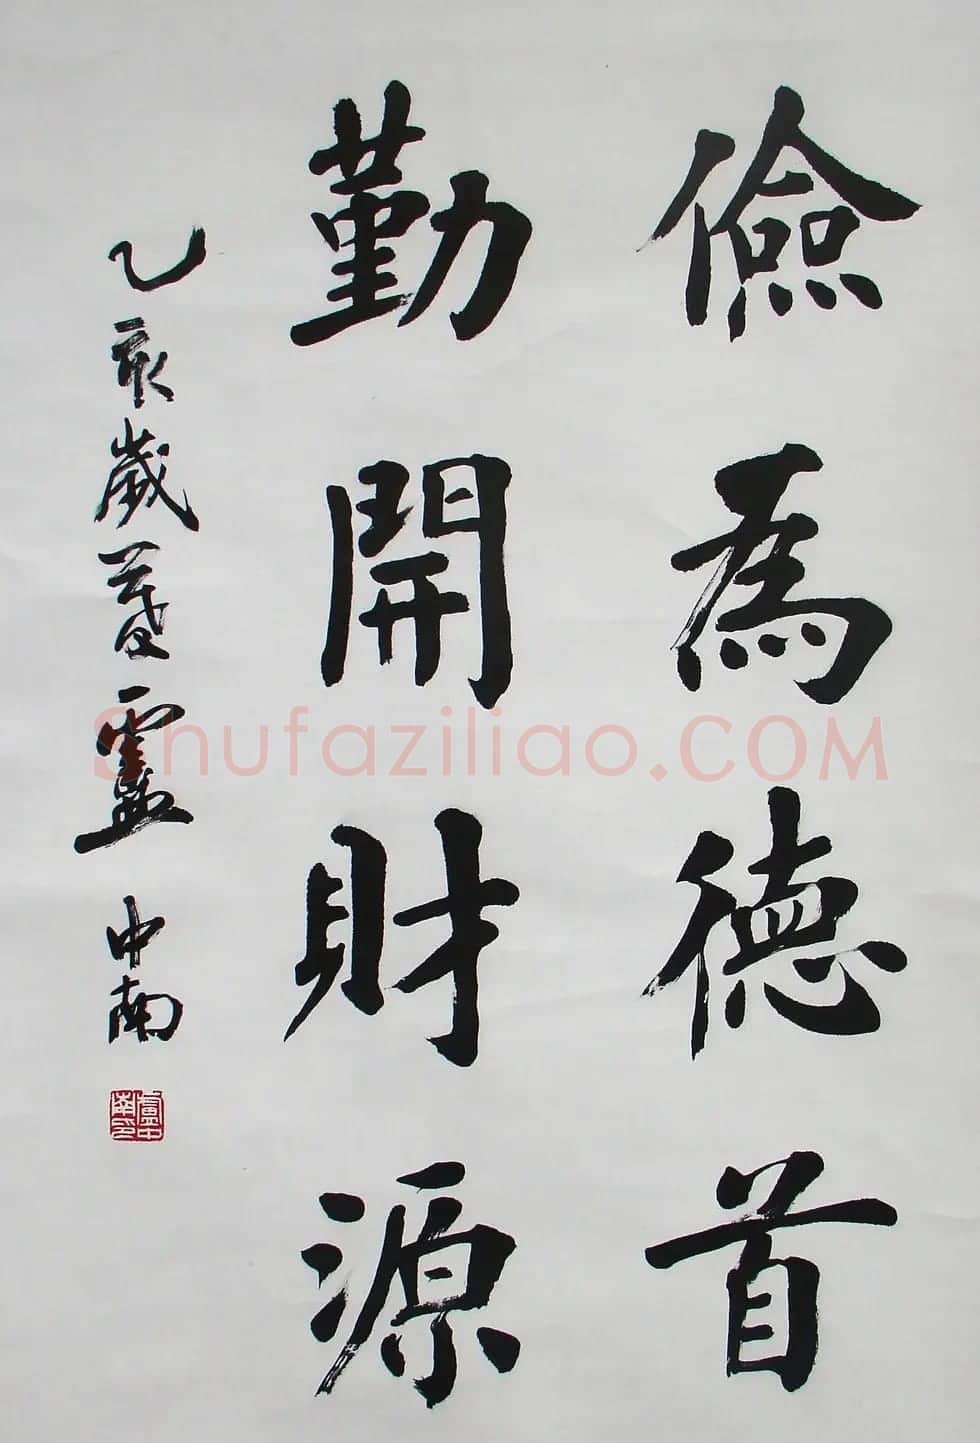 儉為德首
勤開財源
乙亥歲暮盧中南
盧中南印
Shufaziliao.COM